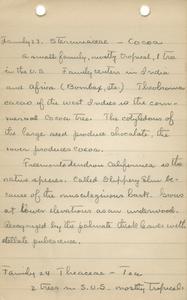 Family 23. Sterculiaceae - Cocoa
a small family, mostly tropical, 1 tree
in the U.S. Family centers in India
and Africa (Bombax, etc.) Theobroma
cacao of the West Indies is the com-
mercial Cocoa tree. The cotyledons of
the large seed produce chocolate, the
cover produces cocoa.
Freemontodendron Californica is the
native species. Called Slippery Elm be-
cause of the mucilaginous bark. Grows
at lower elevations as an underwood.
Recognized by the palmate thick leaves with
stellate pubescence.
Family 24 Theaceae - Tea
2 trees in S.U.S. mostly tropical